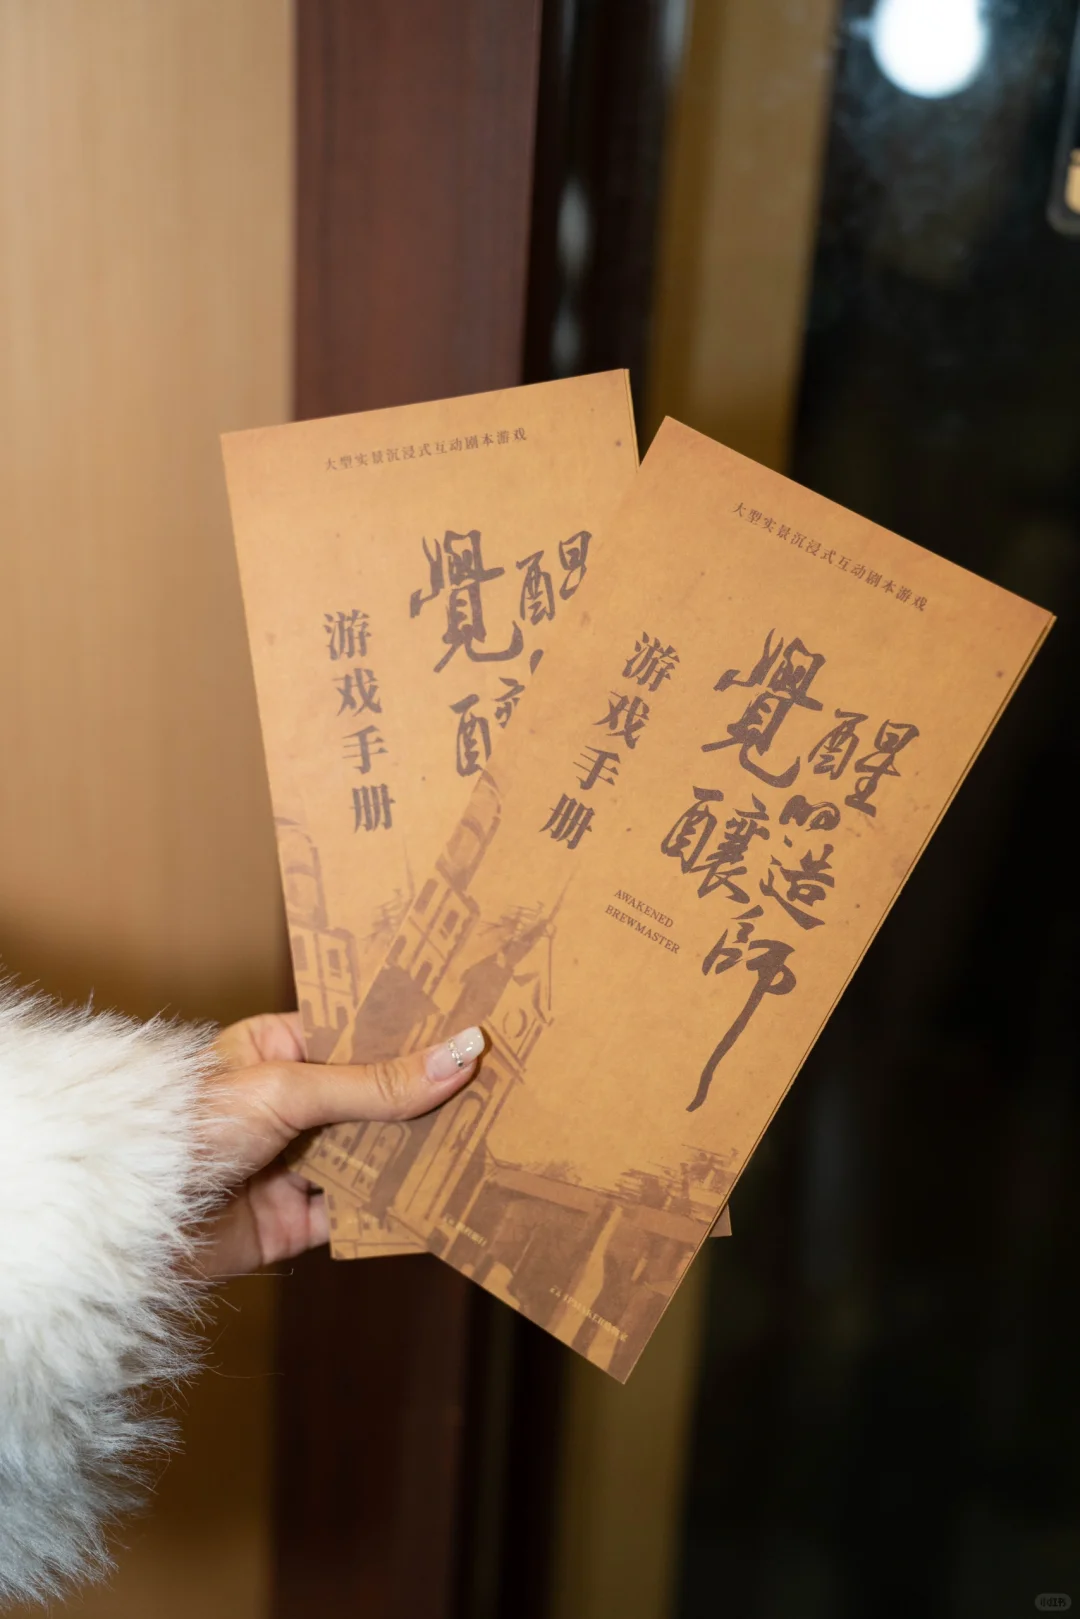 大型实景沉浸式互动剧本游戏
覺醒
酿
游戏手册
大型实景沉浸式互动剧本游戏
覺醒的
釀造師
游戏手册
AWAKENED
BREWMASTER
小红书